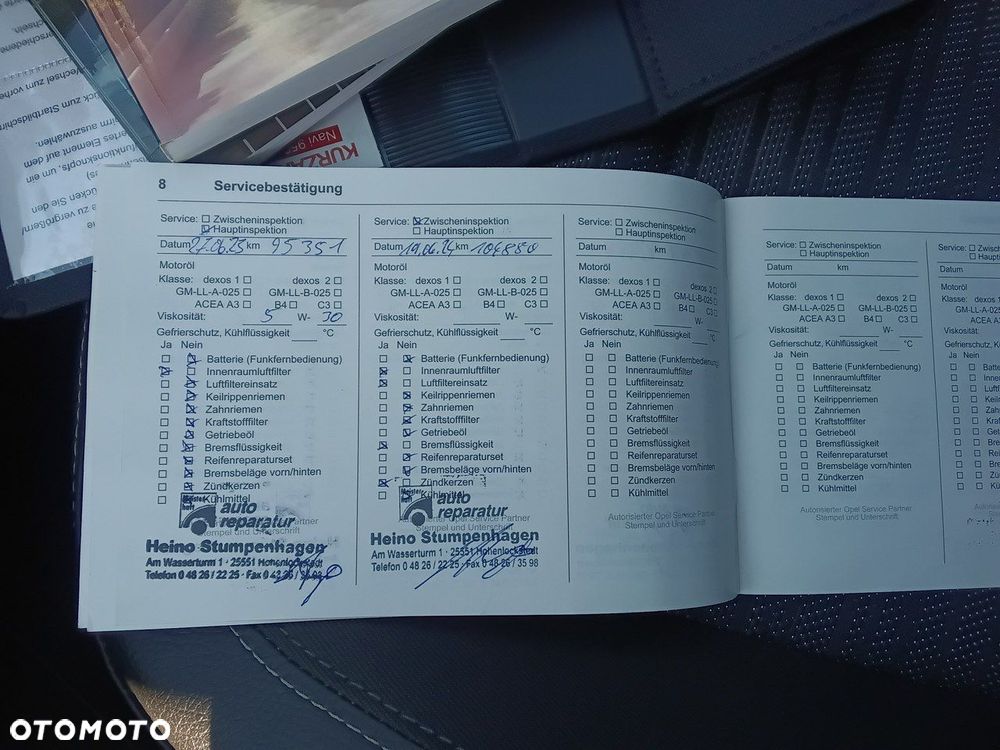 KURZA
Navi 95
8 Servicebestätigung
Service: Zwischeninspektion
Hauptinspektion
Datum 27.06.23 km 95351
Motoröl
Klasse: dexos 1 dexos 2
GM-LL-A-025 GM-LL-B-025
ACEA A3 B4 C3
Viskosität: 5 W- 30
Gefrierschutz, Kühlflüssigkeit °C
Ja Nein
Batterie (Funkfernbedienung)
Innenraumluftfilter
Luftfiltereinsatz
Keilrippenriemen
Zahnriemen
Kraftstofffilter
Getriebeöl
Bremsflüssigkeit
Reifenreparaturset
Bremsbeläge vorn/hinten
Zündkerzen
Kühlmittel
auto
reparatur
Heino Stumpenhagen
Am Wasserturm 1 · 25551 Hohenlockstedt
Telefon 0 48 26 / 22 25 · Fax 0 48 26 / 35 98
Service: Zwischeninspektion
Hauptinspektion
Datum 19.06.24 km
Motoröl
Klasse: dexos 1 dexos 2
GM-LL-A-025 GM-LL-B-025
ACEA A3 B4 C3
Viskosität: W-
Gefrierschutz, Kühlflüssigkeit °C
Ja Nein
Batterie (Funkfernbedienung)
Innenraumluftfilter
Luftfiltereinsatz
Keilrippenriemen
Zahnriemen
Kraftstofffilter
Getriebeöl
Bremsflüssigkeit
Reifenreparaturset
Bremsbeläge vorn/hinten
Zündkerzen
Kühlmittel
auto
reparatur
Autorisierter Opel Service Partner
Stempel und Unterschrift
Heino Stumpenhagen
Am Wasserturm 1 · 25551 Hohenlockstedt
Telefon 0 48 26 / 22 25 · Fax 0 48 26 / 35 98
Service: Zwischeninspektion
Hauptinspektion
Datum km
Motoröl
Klasse: dexos 1 dexos 2
GM-LL-A-025 GM-LL-B-025
ACEA A3 B4 C3
Viskosität: W-
Gefrierschutz, Kühlflüssigkeit °C
Ja Nein
Batterie (Funkfernbedienung)
Innenraumluftfilter
Luftfiltereinsatz
Keilrippenriemen
Zahnriemen
Kraftstofffilter
Getriebeöl
Bremsflüssigkeit
Reifenreparaturset
Bremsbeläge vorn/hinten
Zündkerzen
Kühlmittel
Autorisierter Opel Service Partner
Stempel und Unterschrift
Service: Zwischeninspektion
Hauptinspektion
Datum km
Motoröl
Klasse: dexos 1 dexos 2
GM-LL-A-025 GM-LL-B-025
ACEA A3 B4 C3
Viskosität: W-
Gefrierschutz, Kühlflüssigkeit °C
Ja Nein
Batterie (Funkfernbedienung)
Innenraumluftfilter
Luftfiltereinsatz
Keilrippenriemen
Zahnriemen
Kraftstofffilter
Getriebeöl
Bremsflüssigkeit
Reifenreparaturset
Bremsbeläge vorn/hinten
Zündkerzen
Kühlmittel
Autorisierter Opel Service Partner
Stempel und Unterschrift
Service:
Datum
Motoröl
Klasse:
Viskosität:
Gefriersch
Ja Nein
OTOMOTO